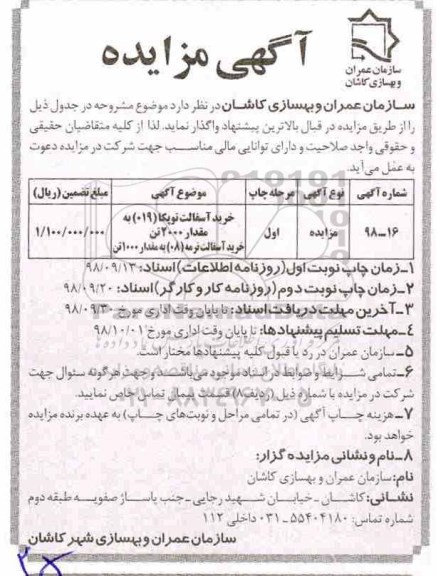 سازمان عمران
و بهسازی کاشان
آگهی مزایده
سازمان عمران و بهسازی کاشان در نظر دارد موضوع مشروحه در جدول ذیل
را از طریق مزایده در قبال بالاترین پیشنهاد واگذار نماید. لذا از کلیه متقاضیان حقیقی
و حقوقی واجد صلاحیت و دارای توانایی مالی مناسب جهت شرکت در مزایده دعوت
به عمل می‌آید.
شماره آگهی نوع آگهی مرحله چاپ موضوع آگهی مبلغ تضمین (ریال)
۱۶-۹۸ مزایده اول خرید آسفالت توپکا (۰۱۹) به
مقدار ۲۰۰۰ تن
خرید آسفالت نرمه (۰۸) به مقدار ۱۰۰۰ تن ۱/۱۰۰/۰۰۰/۰۰۰
۱-زمان چاپ نوبت اول (روزنامه اطلاعات) اسناد: ۹۸/۰۹/۱۳
۲-زمان چاپ نوبت دوم (روزنامه کار و کارگر) اسناد: ۹۸/۰۹/۲۰
۳-آخرین مهلت دریافت اسناد: تا پایان وقت اداری مورخ ۹۸/۰۹/۳۰
۴-مهلت تسلیم پیشنهادها: تا پایان وقت اداری مورخ ۹۸/۱۰/۰۱
۵-سازمان عمران در رد یا قبول کلیه پیشنهادها مختار است.
۶-تمامی شرایط و ضوابط در اسناد موجود می‌باشد و جهت هرگونه سئوال جهت
شرکت در مزایده با شماره ذیل (ردیف ۸) قسمت پیمان تماس حاصل نمایید.
۷-هزینه چاپ آگهی (در تمامی مراحل و نوبت‌های چاپ) به عهده برنده مزایده
خواهد بود.
۸-نام و نشانی مزایده گزار:
نام: سازمان عمران و بهسازی کاشان
نشانی: کاشان - خیابان شهید رجایی - جنب پاساژ صفویه طبقه دوم
شماره تماس: ۵۵۴۰۴۱۸۰-۰۳۱ داخلی ۱۱۲
سازمان عمران و بهسازی شهر کاشان